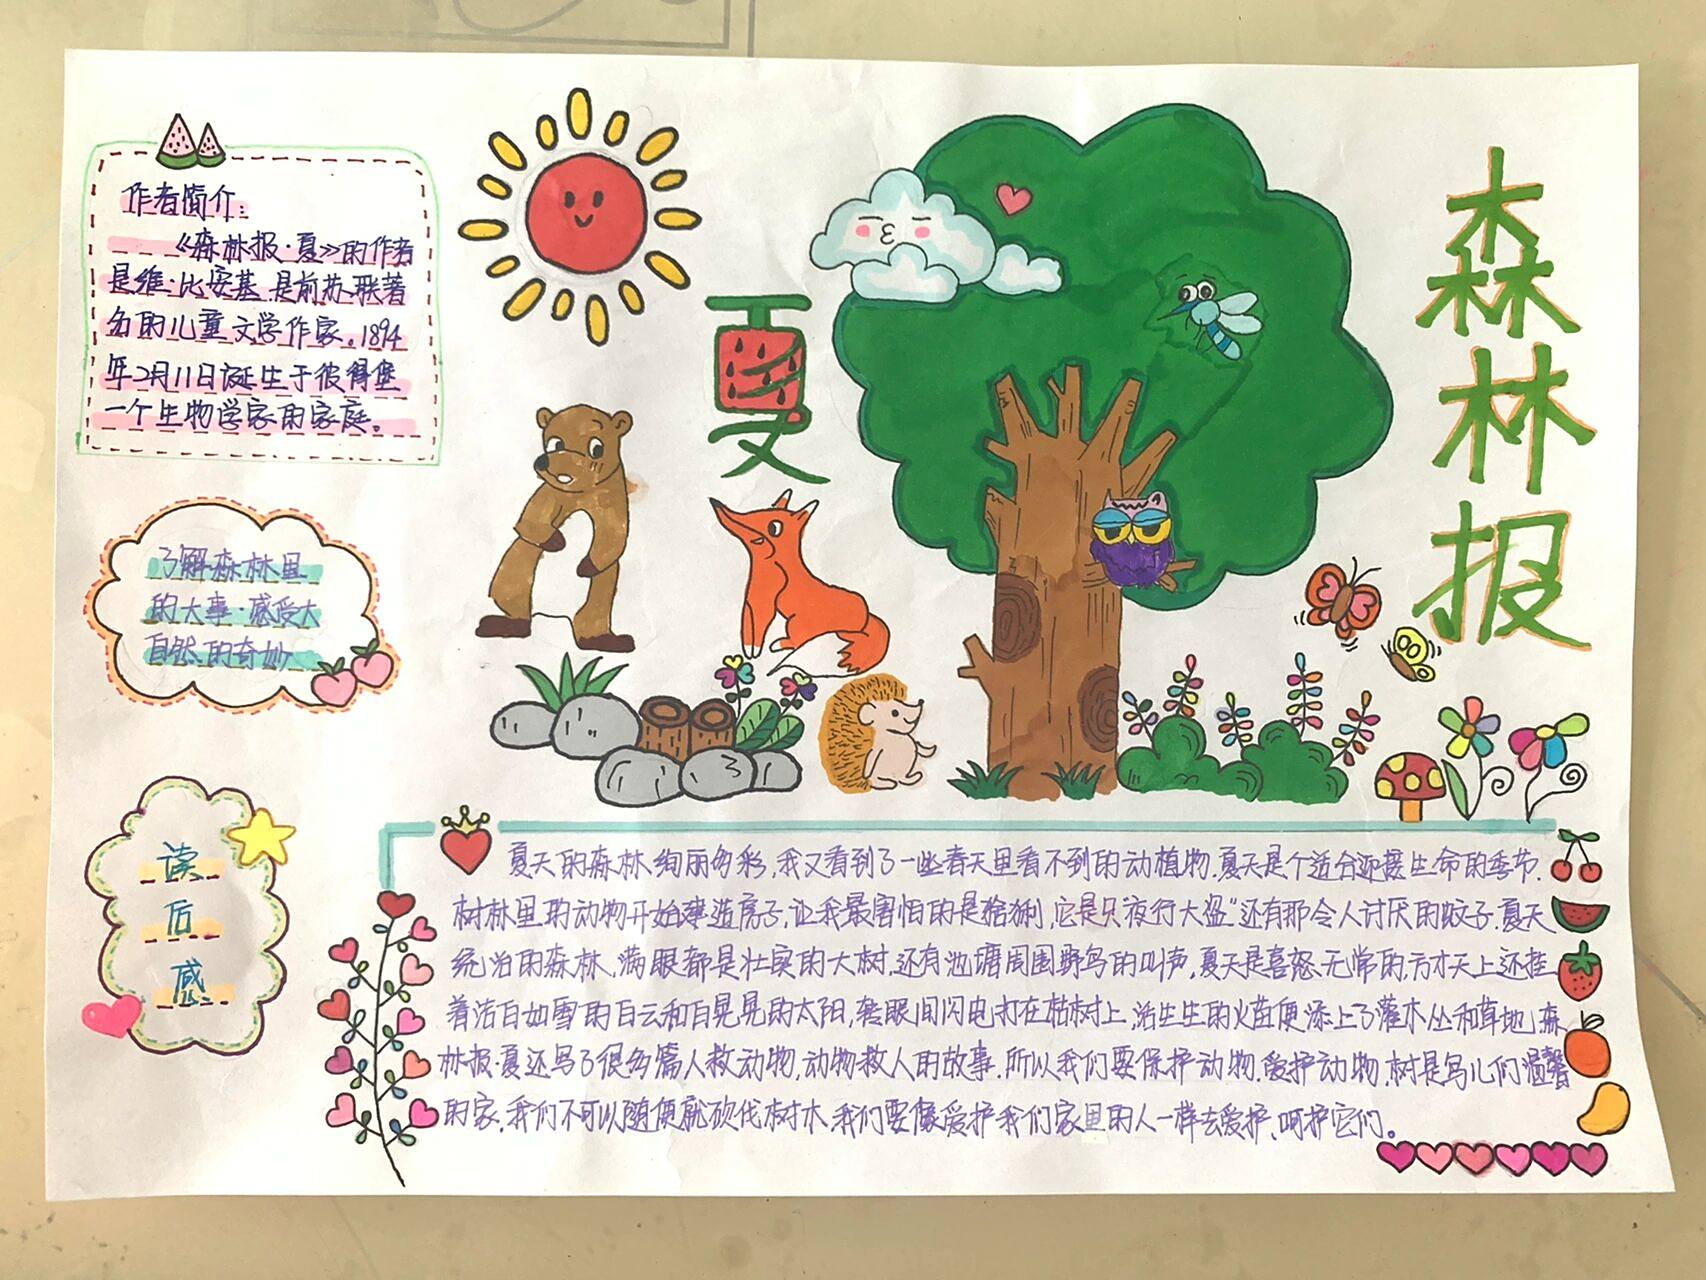 森林报
夏
作者简介:
《森林报·夏》的作者
是维·比安基.是前苏联著
名的儿童文学作家。1894
年2月11日诞生于彼得堡
一个生物学家的家庭。
了解森林里
的大事·感受大
自然的奇妙
读
后
感
夏天的森林绚丽多彩,我又看到了一些春天里看不到的动植物.夏天是个适合迎接生命的季节.
树林里的动物开始建造房子,让我最害怕的是猞猁,它是只"夜行大盗"还有那令人讨厌的蚊子.夏天
统治的森林,满眼都是壮实的大树,还有池塘周围野鸟的叫声,夏天是喜怒无常的,方才天上还挂
着洁白如雪的白云和白晃晃的太阳,转眼间闪电打在枯树上,活生生的火苗便添上了灌木丛和草地,森
林报·夏还写了很多篇人救动物,动物救人的故事.所以我们要保护动物.爱护动物,树是鸟儿们温馨
的家,我们不可以随便就砍伐树木,我们要像爱护我们家里的人一样去爱护、呵护它们。